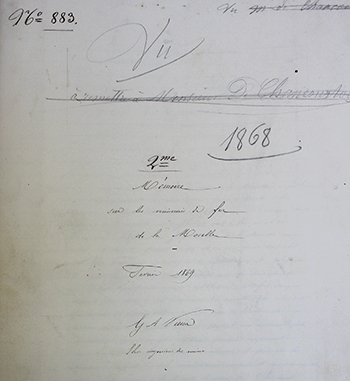 No 883.
Vu
Vu
à remettre à Monsieur De Chancourtois
1868
2me
Mémoire
sur les minerais de fer
de la Moselle
Février 1869
G A
Elève ingénieur des mines